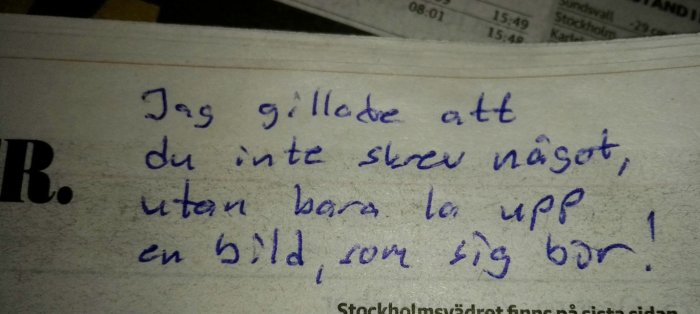 STAND I
Sundsvall -29 cm
Stockholm
08.01 15:49
15:48
Jag gillade att
du inte skrev något,
R.
utan bara la upp
en bild, som sig bör!
Stockholmsvädret finns på sista sidan